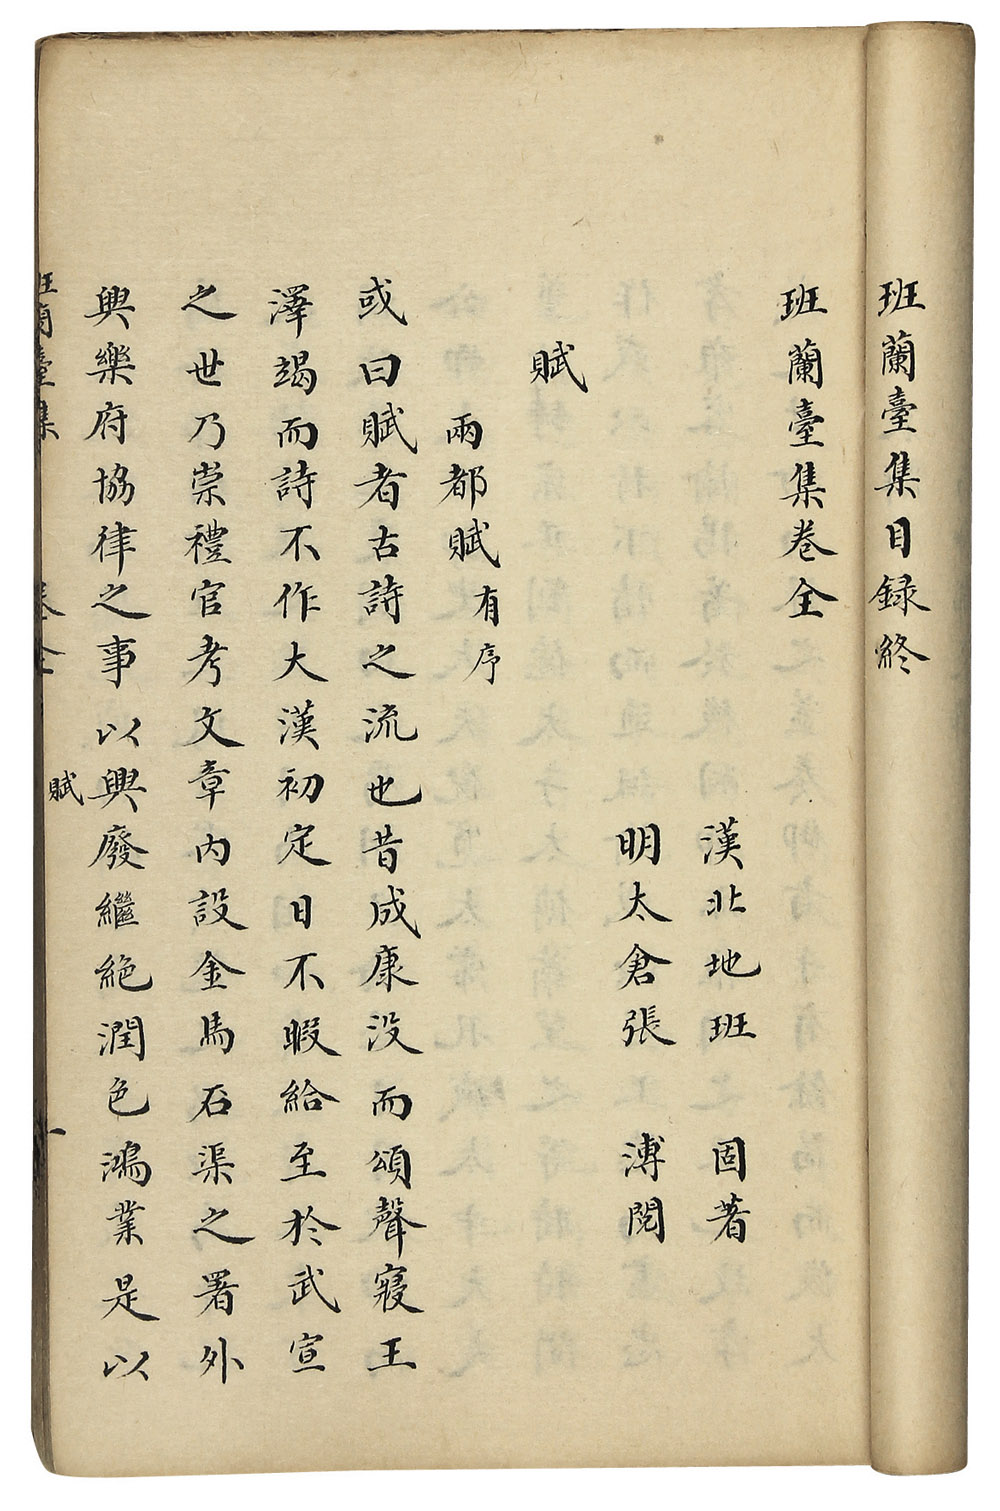 班蘭臺集目録終
班蘭臺集卷全
漢北地班　固著
明太倉張　溥閱
賦
兩都賦有序
或曰賦者古詩之流也昔成康没而頌聲寢王
澤竭而詩不作大漢初定日不暇給至於武宣
之世乃崇禮官考文章内設金馬石渠之署外
興樂府協律之事以興廢繼絶潤色鴻業是以
班蘭臺集　卷全　賦　一